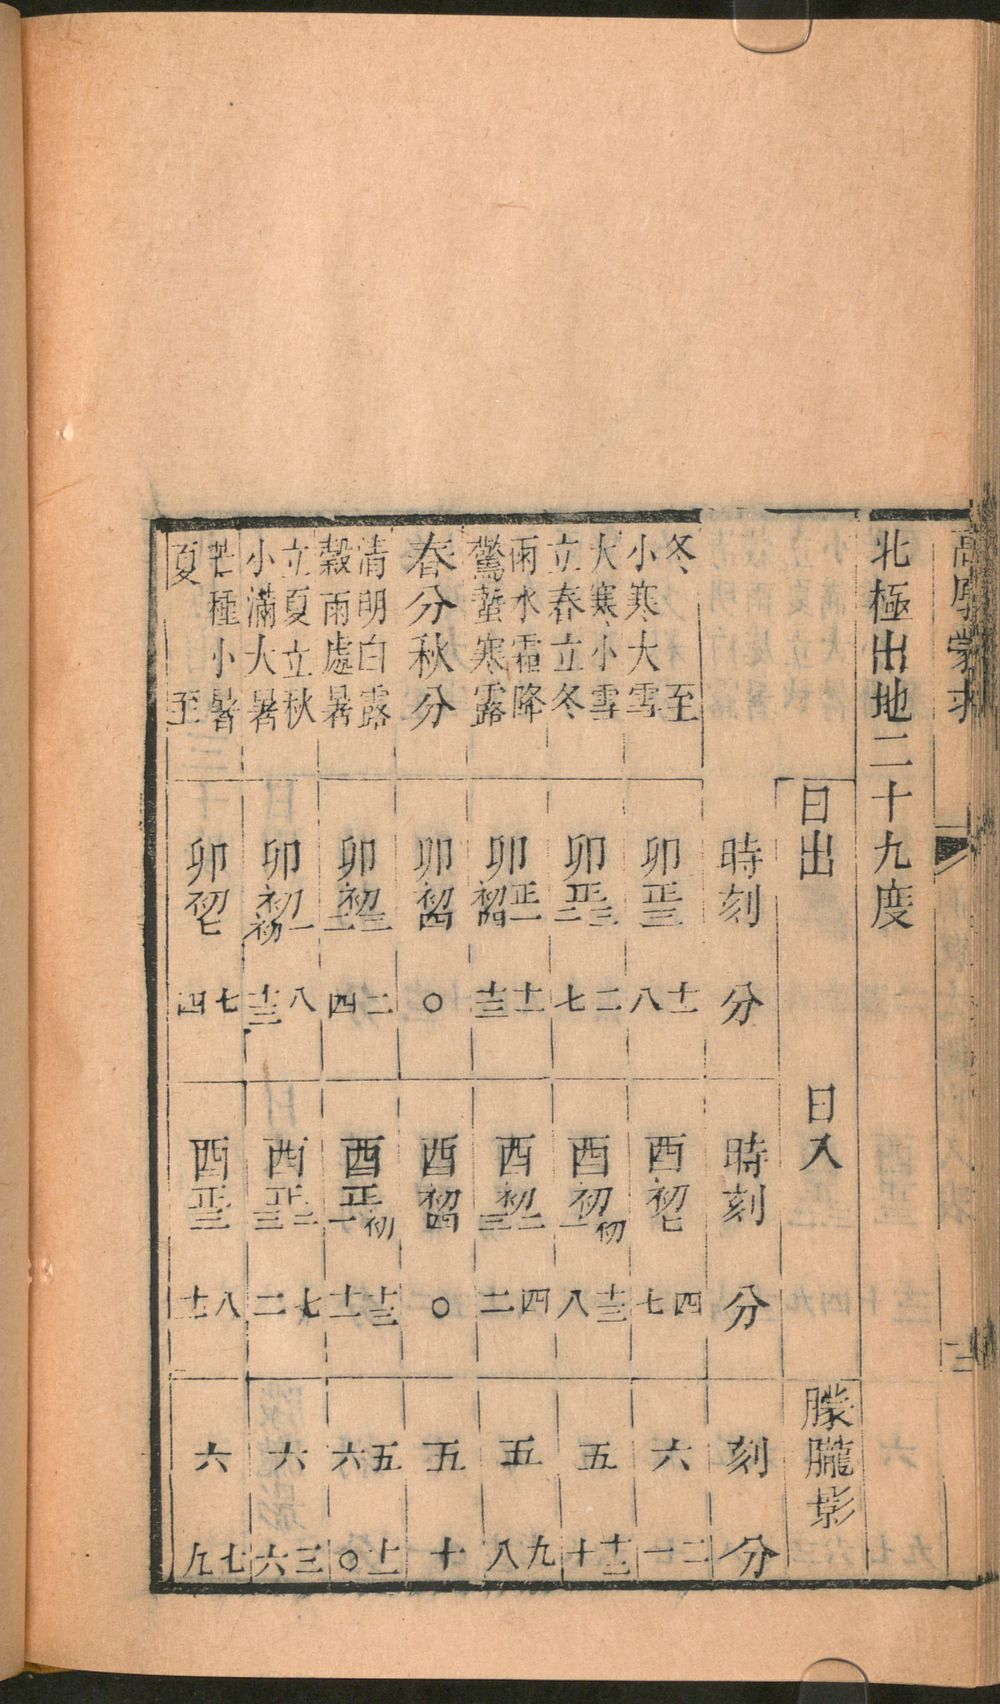 高厚蒙求
二
北極出地二十九度
日出 日入 朦朧影
時刻 分 時刻 分 刻 分
冬至
小寒大雪
卯正三 十一 八 酉初七 四 七 六 二 一
大寒小雪
立春立冬
卯正三二 二 七 酉初初一 十三 八 五 十二 十
雨水霜降
驚蟄寒露
卯正一初四 十一 十三 酉初二三 四 二 五 九 八
春分秋分
卯初四 〇 酉初四 〇 五 十
清明白露
穀雨處暑
卯初三二 二 四 酉正初一 十三 十一 五 六 十一 〇
立夏立秋
小滿大暑
卯初一初初 八 十三 酉正二三 七 二 六 三 六
芒種小暑
夏至
卯初七 七 四 酉正三 八 十一 六 七 九